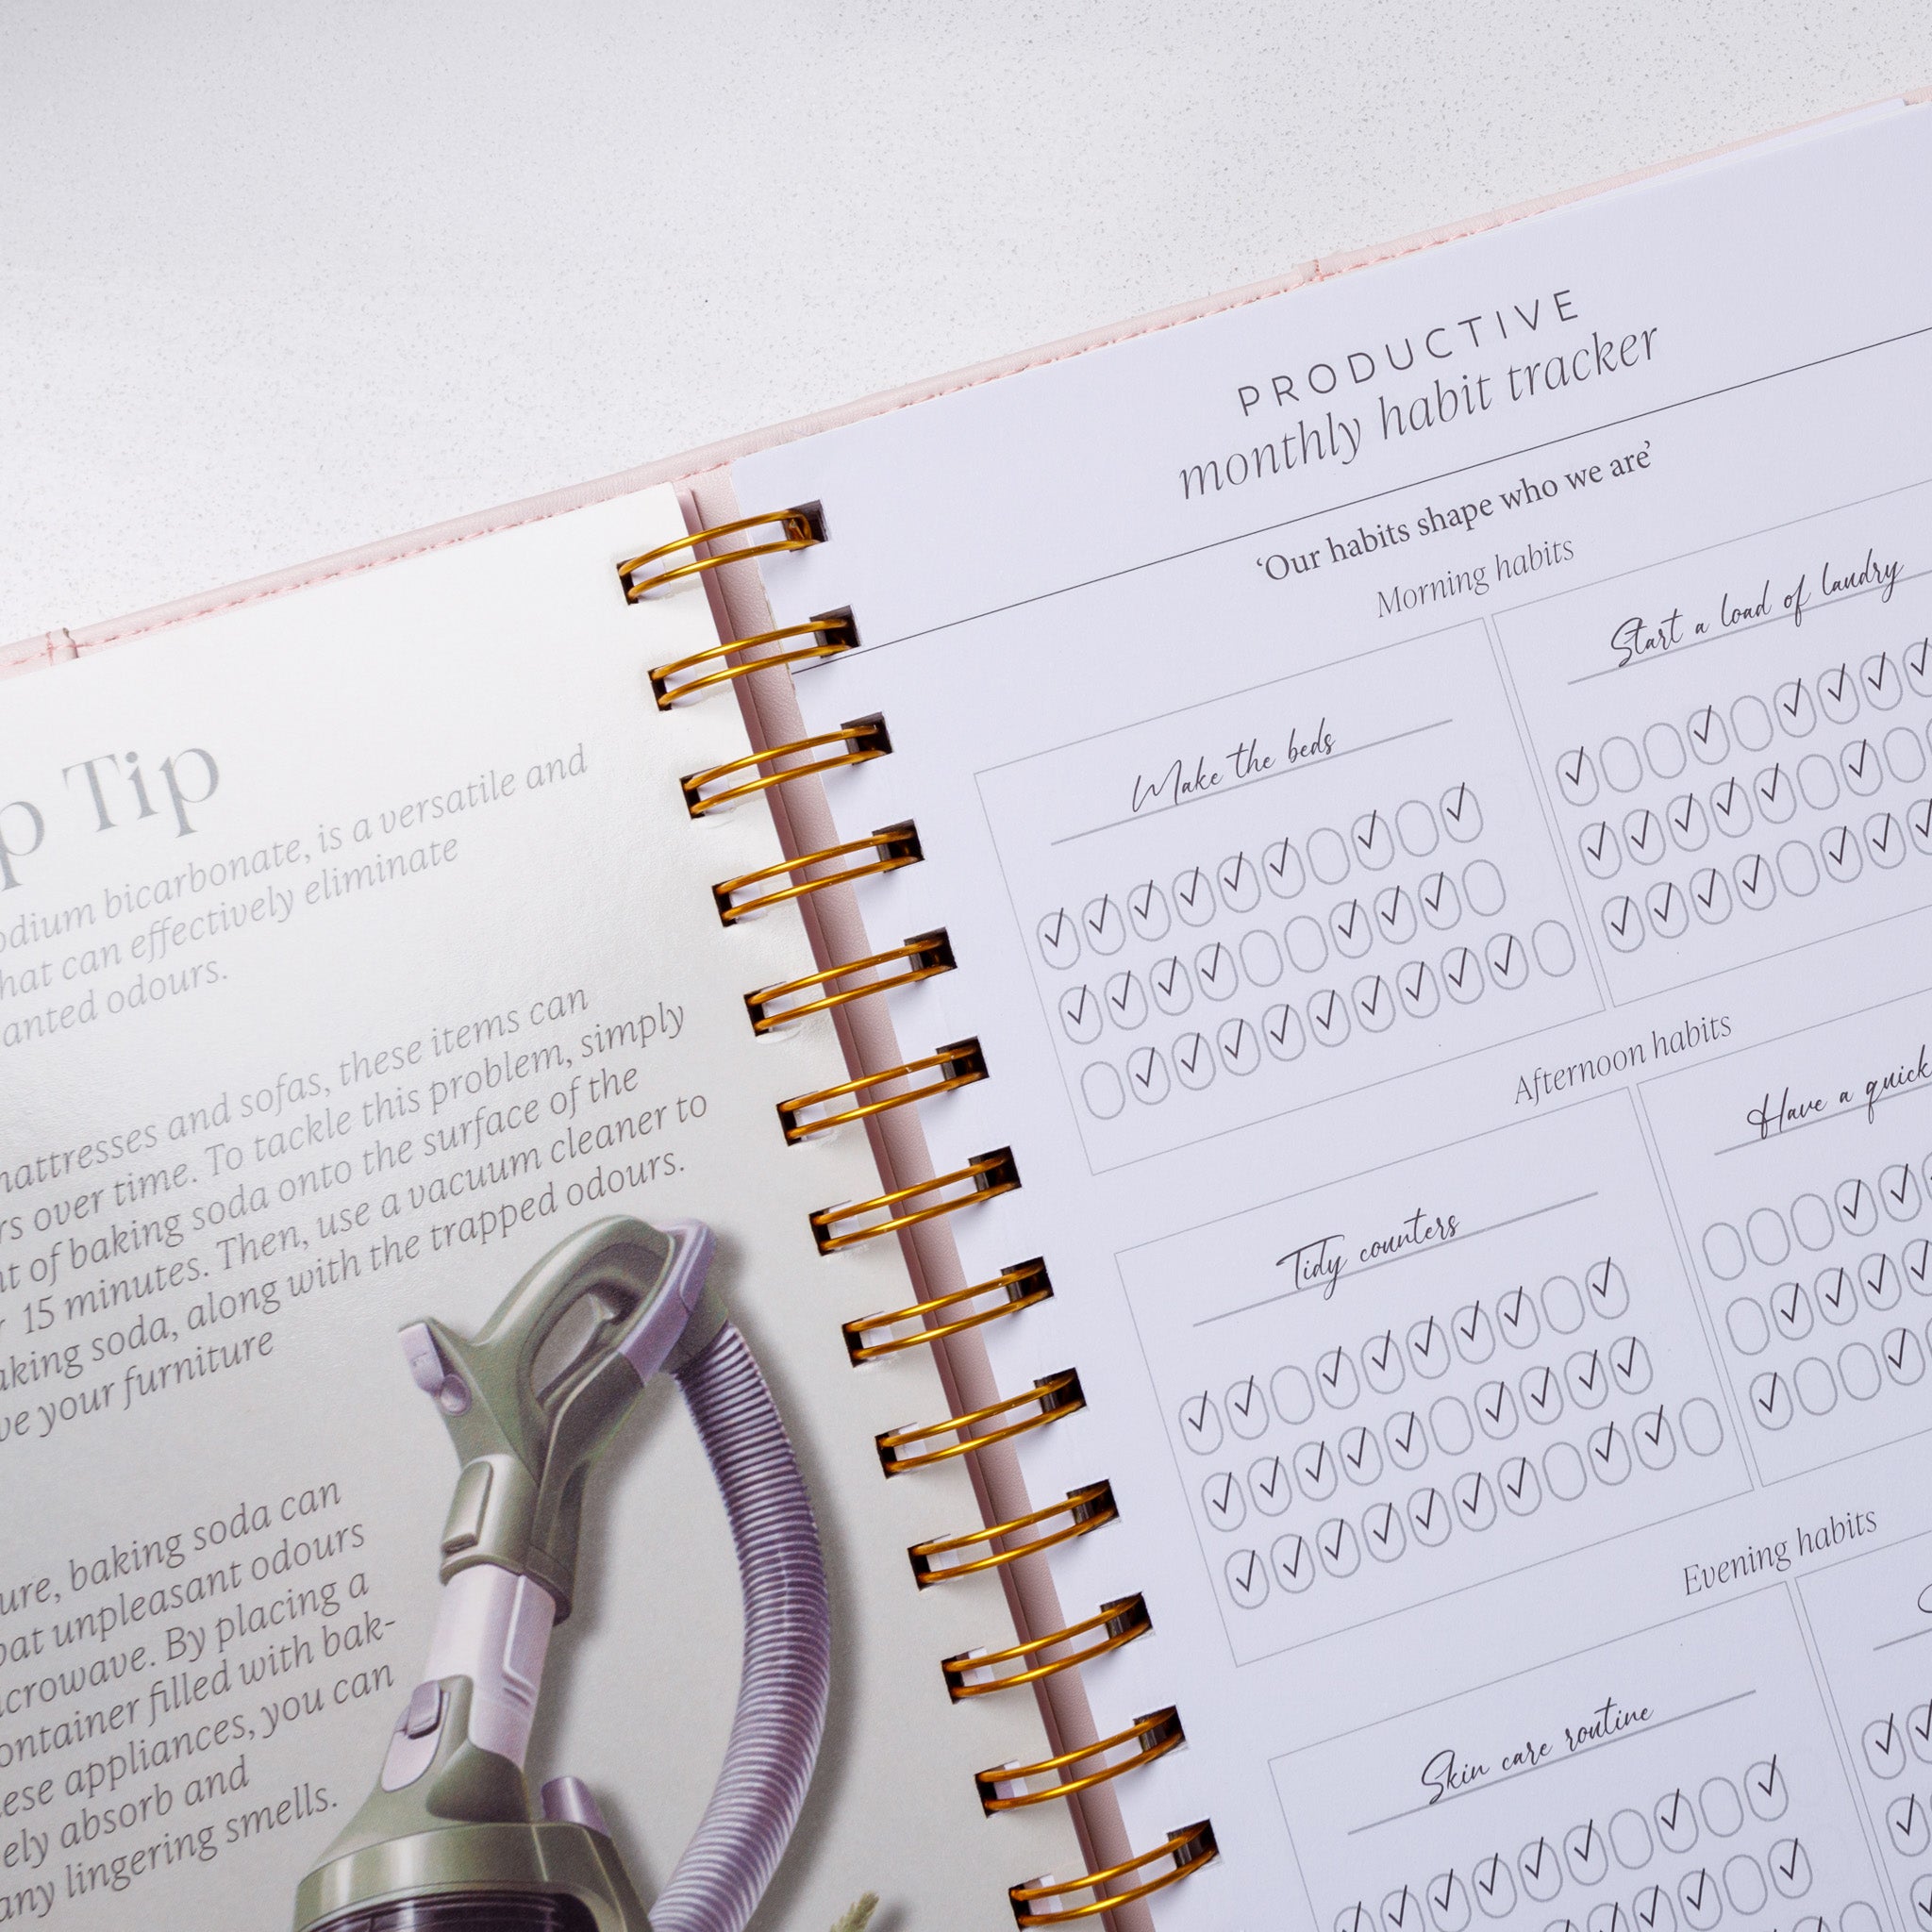 Tip
bicarbonate, is a versatile and
can effectively eliminate
odours.
and sofas, these items can
over time. To tackle this problem, simply
of baking soda onto the surface of the
15 minutes. Then, use a vacuum cleaner to
soda, along with the trapped odours.
your furniture
baking soda can
unpleasant odours
By placing a
filled with bak-
appliances, you can
absorb and
any lingering smells.
PRODUCTIVE
monthly habit tracker
‘Our habits shape who we are’
Morning habits
Make the beds
Start a load of laudry
Afternoon habits
Tidy counters
Have a quick
Evening habits
Skin care routine